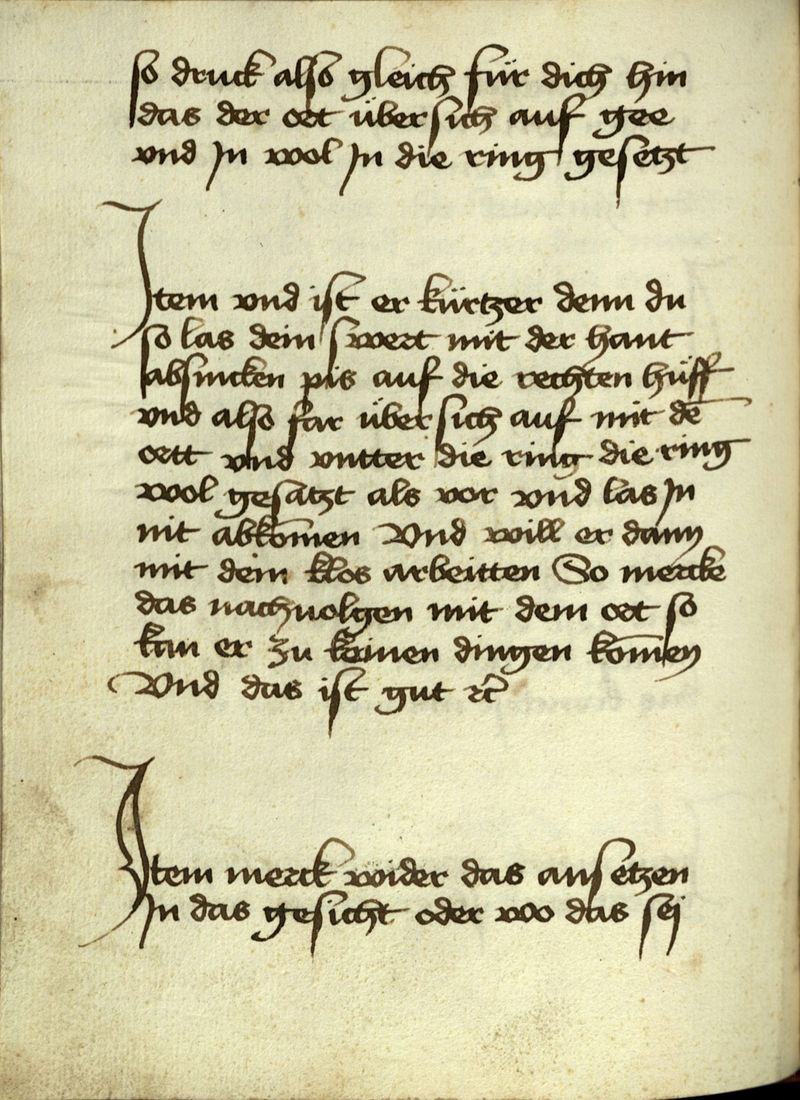 so druck also gleich für dich hin
das der ort übersich auf gee
vnd Jn wol Jn die ring gesetzt
Jtem vnd ist er kürtzer denn du
so las dein swert mit der hant
absincken pis auf die rechten hüff
vnd also far übersich auf mit dē
ortt vnd vntter die ring die ring
wol gesatzt als vor vnd las Jn
nit abkom̄en Vnd will er dann
mit dem klos arbeitten So mercke
das nachuolgen mit dem ort so
kan er zu keinen dingen kom̄en
Vnd das ist gut ꝛc̄
Jtem merck wider das ansetzen
Jn das gesicht oder wo das sej